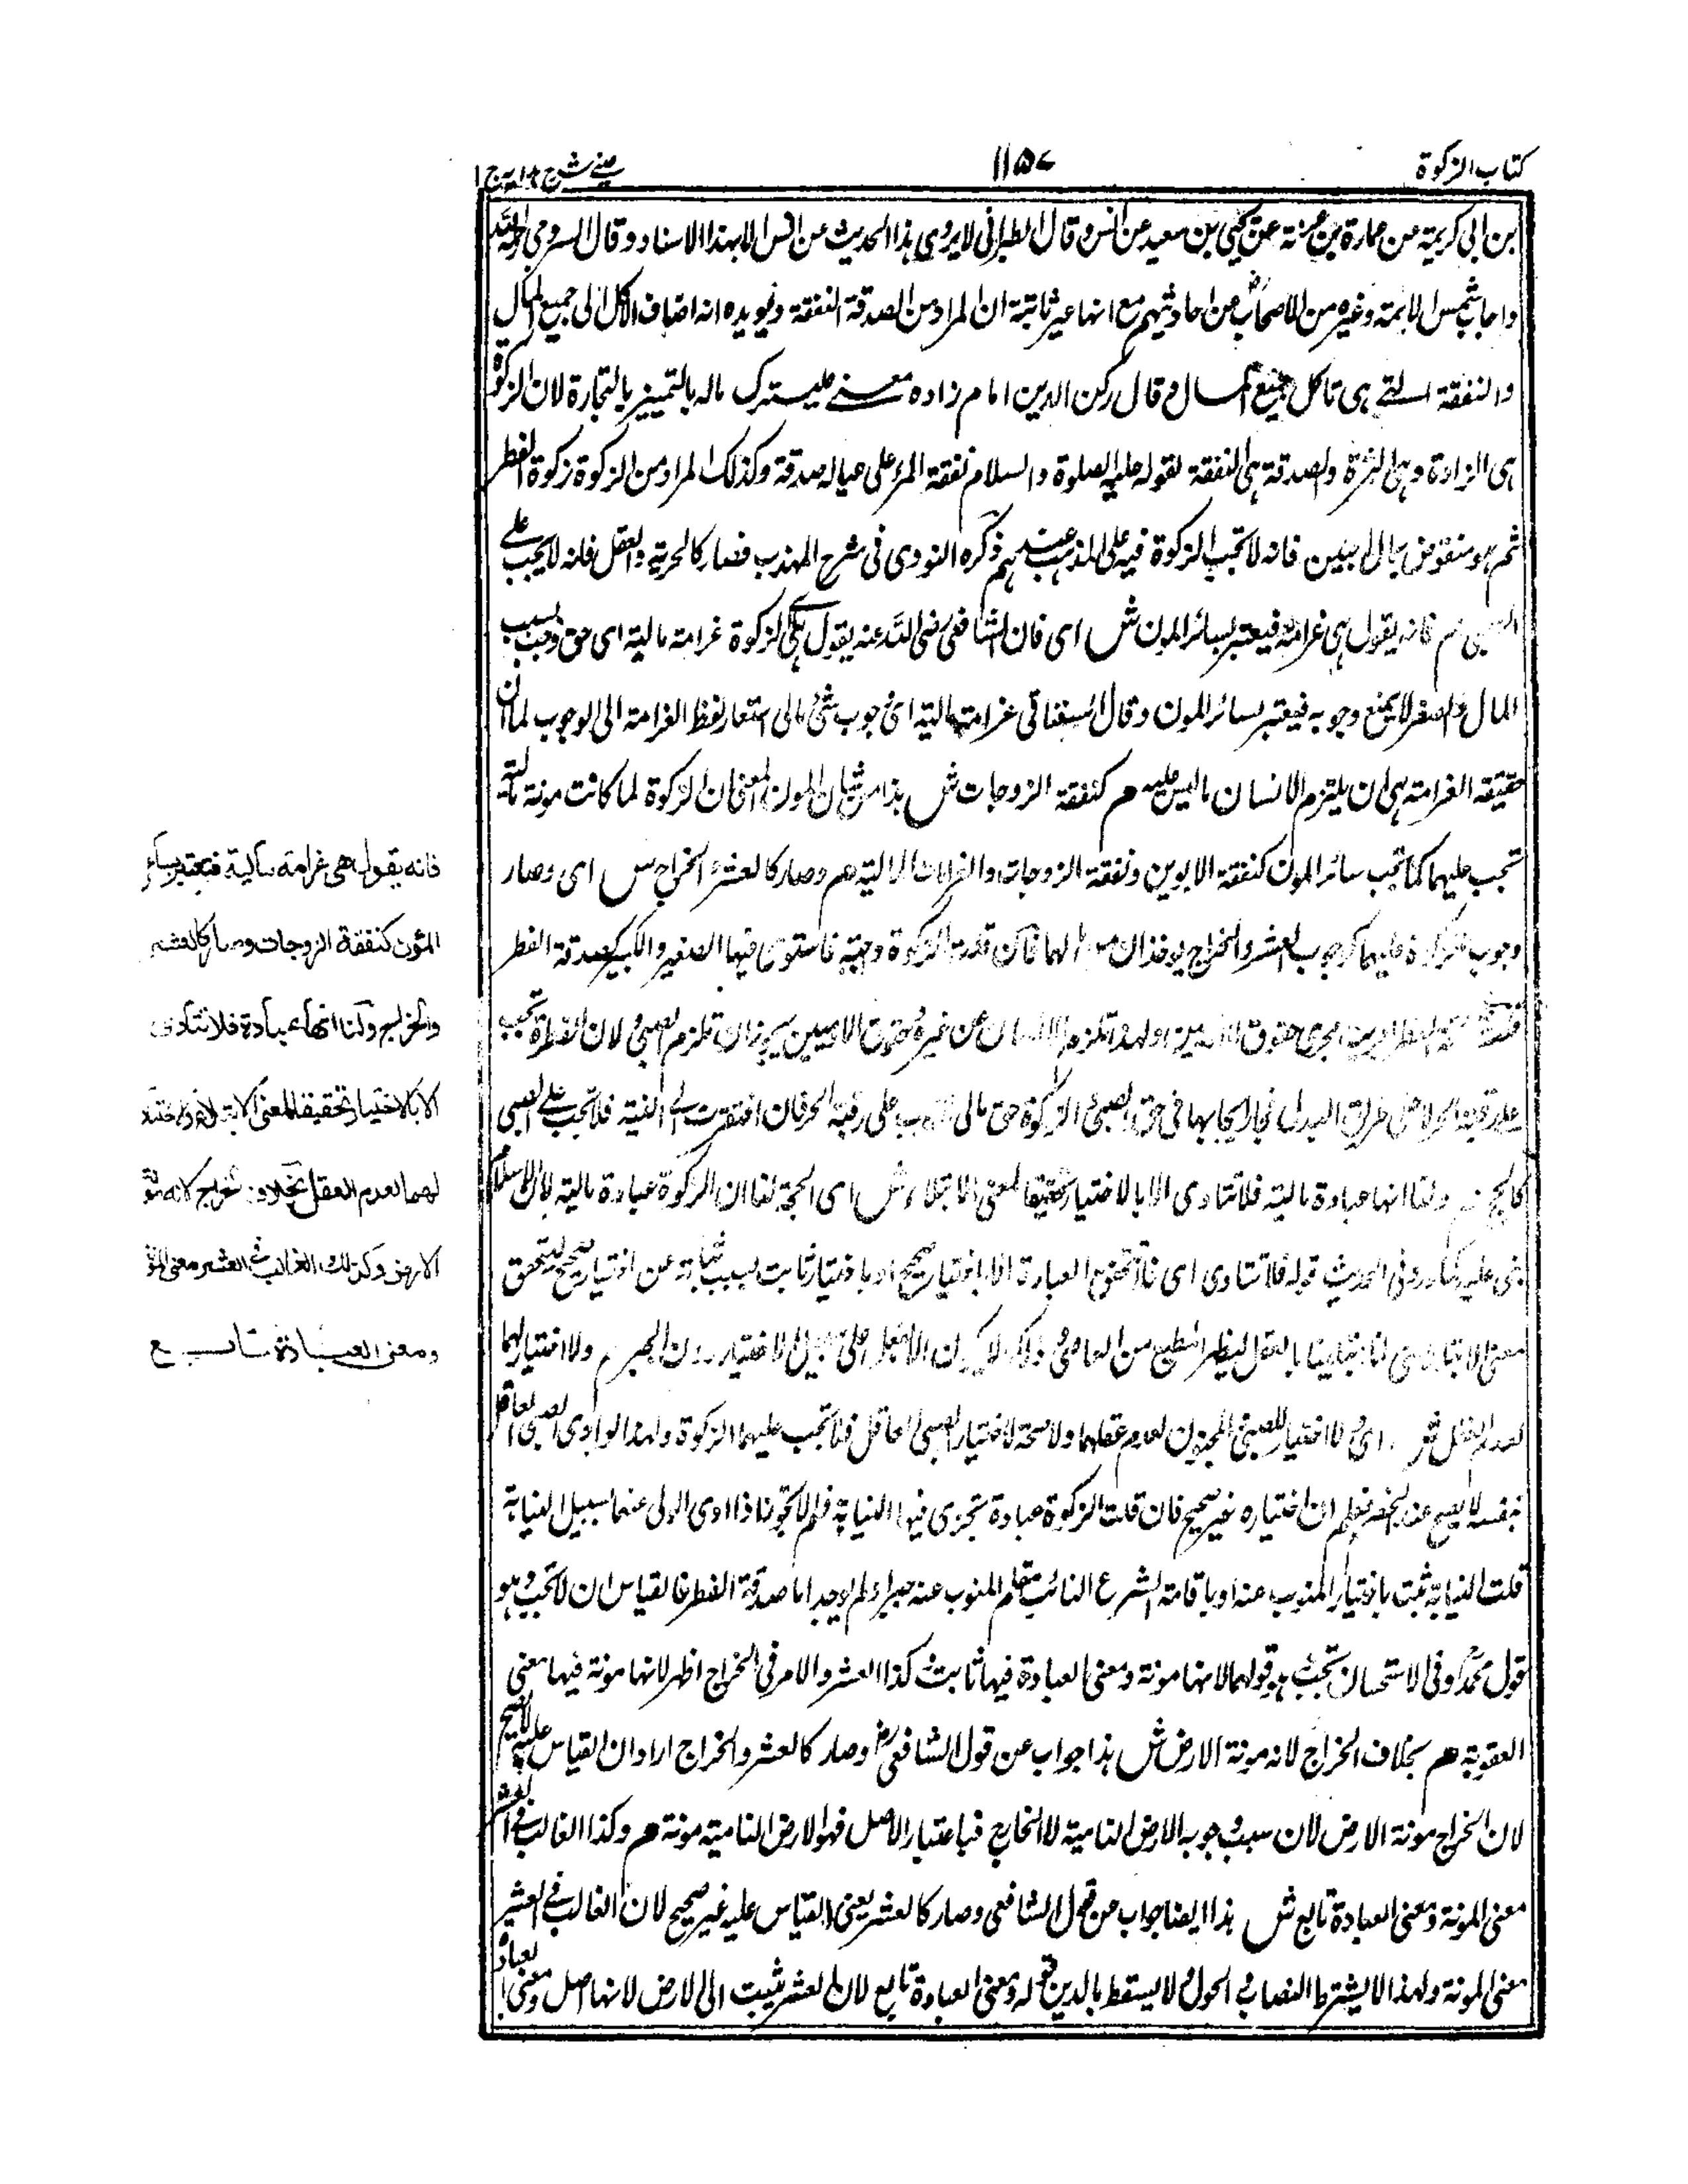 كتاب الزكوة
١١٥٧
عينے شرح هدايه ج ١
بن ابى كريمة عن عمارة بن غزية عن يحيى بن سعيد عن انس وقال الطبرانى لا يروى هذا الحديث عن انس الا بهذا الاسناد وقال السروجى رحمه الله
واجاب شمس الائمة وغيره من الاصحاب عن احاديثهم مع انها غير ثابتة ان المراد من الصدقة النفقة ويؤيده انه اضاف الاكل الى جميع المال
والنفقة التے هى تاكل جميع المال وقال ركن الدين امام زاده معنے ماله بالتميز بالتجارة لان الزكوة
هى الزادة وهى الثمرة والصدقة هى النفقة لقوله عليه الصلوة والسلام نفقة المرء على عياله صدقة وكذلك المراد من الزكوة زكوة الفطر
ثم هو منقوض بمال الجنين فانه لا تجب الزكوة فيه على المذهب عندهم ذكره النووى فى شرح المهذب فصار كالحرية والعقل فانه لا يجب على
الصبى م فانه يقول هى غرامة فيعتبر بسائر المون ش اى فان الشافعى رضى الله عنه يقول بان الزكوة غرامة مالية اى حق وجب بسبب
المال والصغر لا يمنع وجوبه فيعتبر بسائر المون وقال السغناقى غرامة مالية اى وجوب شئ مالى استعار لفظ الغرامة الى الوجوب لما ان
حقيقة الغرامة هى ان يلتزم الانسان ما ليس عليه م كنفقة الزوجات ش هذا من شان المون المعنى ان الزكوة لما كانت مونة مالية
تجب عليهما كما تجب سائر المون كنفقة الابوين ونفقة الزوجات والغرامات المالية م وصار كالعشر والخراج ش اى وصار
وجوب الزكوة عليهما كوجوب العشر والخراج يوخذان من مالهما فان قلت الزكوة وجبت فاستوى فيها الصغير والكبير كصدقة الفطر
قلت صدقة الفطر جرت مجرى حقوق الادميين ولهذا تلزم الانسان عن غيره وحقوق الادميين يجوز ان تلزم الصبى ولان الفطرة تجب
على رقبة الحر لا على طريق البدل فجاز ايجابها فى حق الصبى الزكوة حق مالى على رقبة الحر فان افتقرت الى النية فلا تجب على الصبى
كالحج م ولنا انها عبادة مالية فلا تتادى الا بالاختيار تحقيقا لمعنى الابتلاء ش اى الحجة لنا ان الزكوة عبادة مالية لان الاسلام
بنى عليه كما ورد فى الحديث قوله فلا تتادى اى فلا تتحقق العبادة الا باختيار صحيح او باختيار ثابت بسبب نيابة عن اختيار صحيح ليتحقق
معنى الابتلاء يعنى انا ابتلينا بالعقل ليظهر المطيع من العاصى وذلك لا يكون الا بفعل على سبيل الاختيار دون الجبر م ولا اختيار لهما
لعدم العقل ش اى لا اختيار للصبى والمجنون لعدم عقلهما ولا صحة لاختيار الصبى العاقل فلا تجب عليهما الزكوة ولهذا لو ادى الصبى العاقل
بنفسه لا يصح عند الخصم فعلم ان اختياره غير صحيح فان قلت الزكوة عبادة تجزى فيها النيابة فلم لا تجوز اذا ادى الولى عنهما بسبيل النيابة
قلت النيابة تثبت باختيار المنوب عنه او باقامة الشرع النائب مقام المنوب عنه جبرا ولم يوجد اما صدقة الفطر فالقياس ان لا تجب وهو
قول محمد وفى الاستحسان تجب وهو قولهما لانها مونة ومعنى العبادة فيها ثابت وكذا العشر والامر فى الخراج اظهر لانها مونة فيها معنى
العقوبة م بخلاف الخراج لانه مونة الارض ش هذا جواب عن قول الشافعى وصار كالعشر والخراج اراد ان القياس عليه لا يصح
لان الخراج مونة الارض لان سبب وجوبه الارض النامية لا الخارج فباعتبار الاصل فهو الارض النامية مونة م وكذا الغالب فى العشر
معنى المونة ومعنى العبادة تابع ش هذا ايضا جواب عن قول الشافعى وصار كالعشر يعنى القياس عليه غير صحيح لان الغالب فى العشر
معنى المونة ولهذا لا يشترط النصاب والحول ولا يسقط بالدين قوله ومعنى العبادة تابع لان العشر يثبت الى الارض لانها اصل ومعنى العبادة
فانه يقول هى غرامة مالية فيعتبر بسائر
المؤن كنفقة الزوجات وصار كالعشر
والخراج ولنا انها عبادة فلا تتأدى
الا بالاختيار تحقيقا لمعنى الابتلاء ولا اختيار
لهما لعدم العقل بخلاف الخراج لانه مؤنة
الارض وكذلك الغالب فى العشر معنى المؤنة
ومعنى العبادة تابع